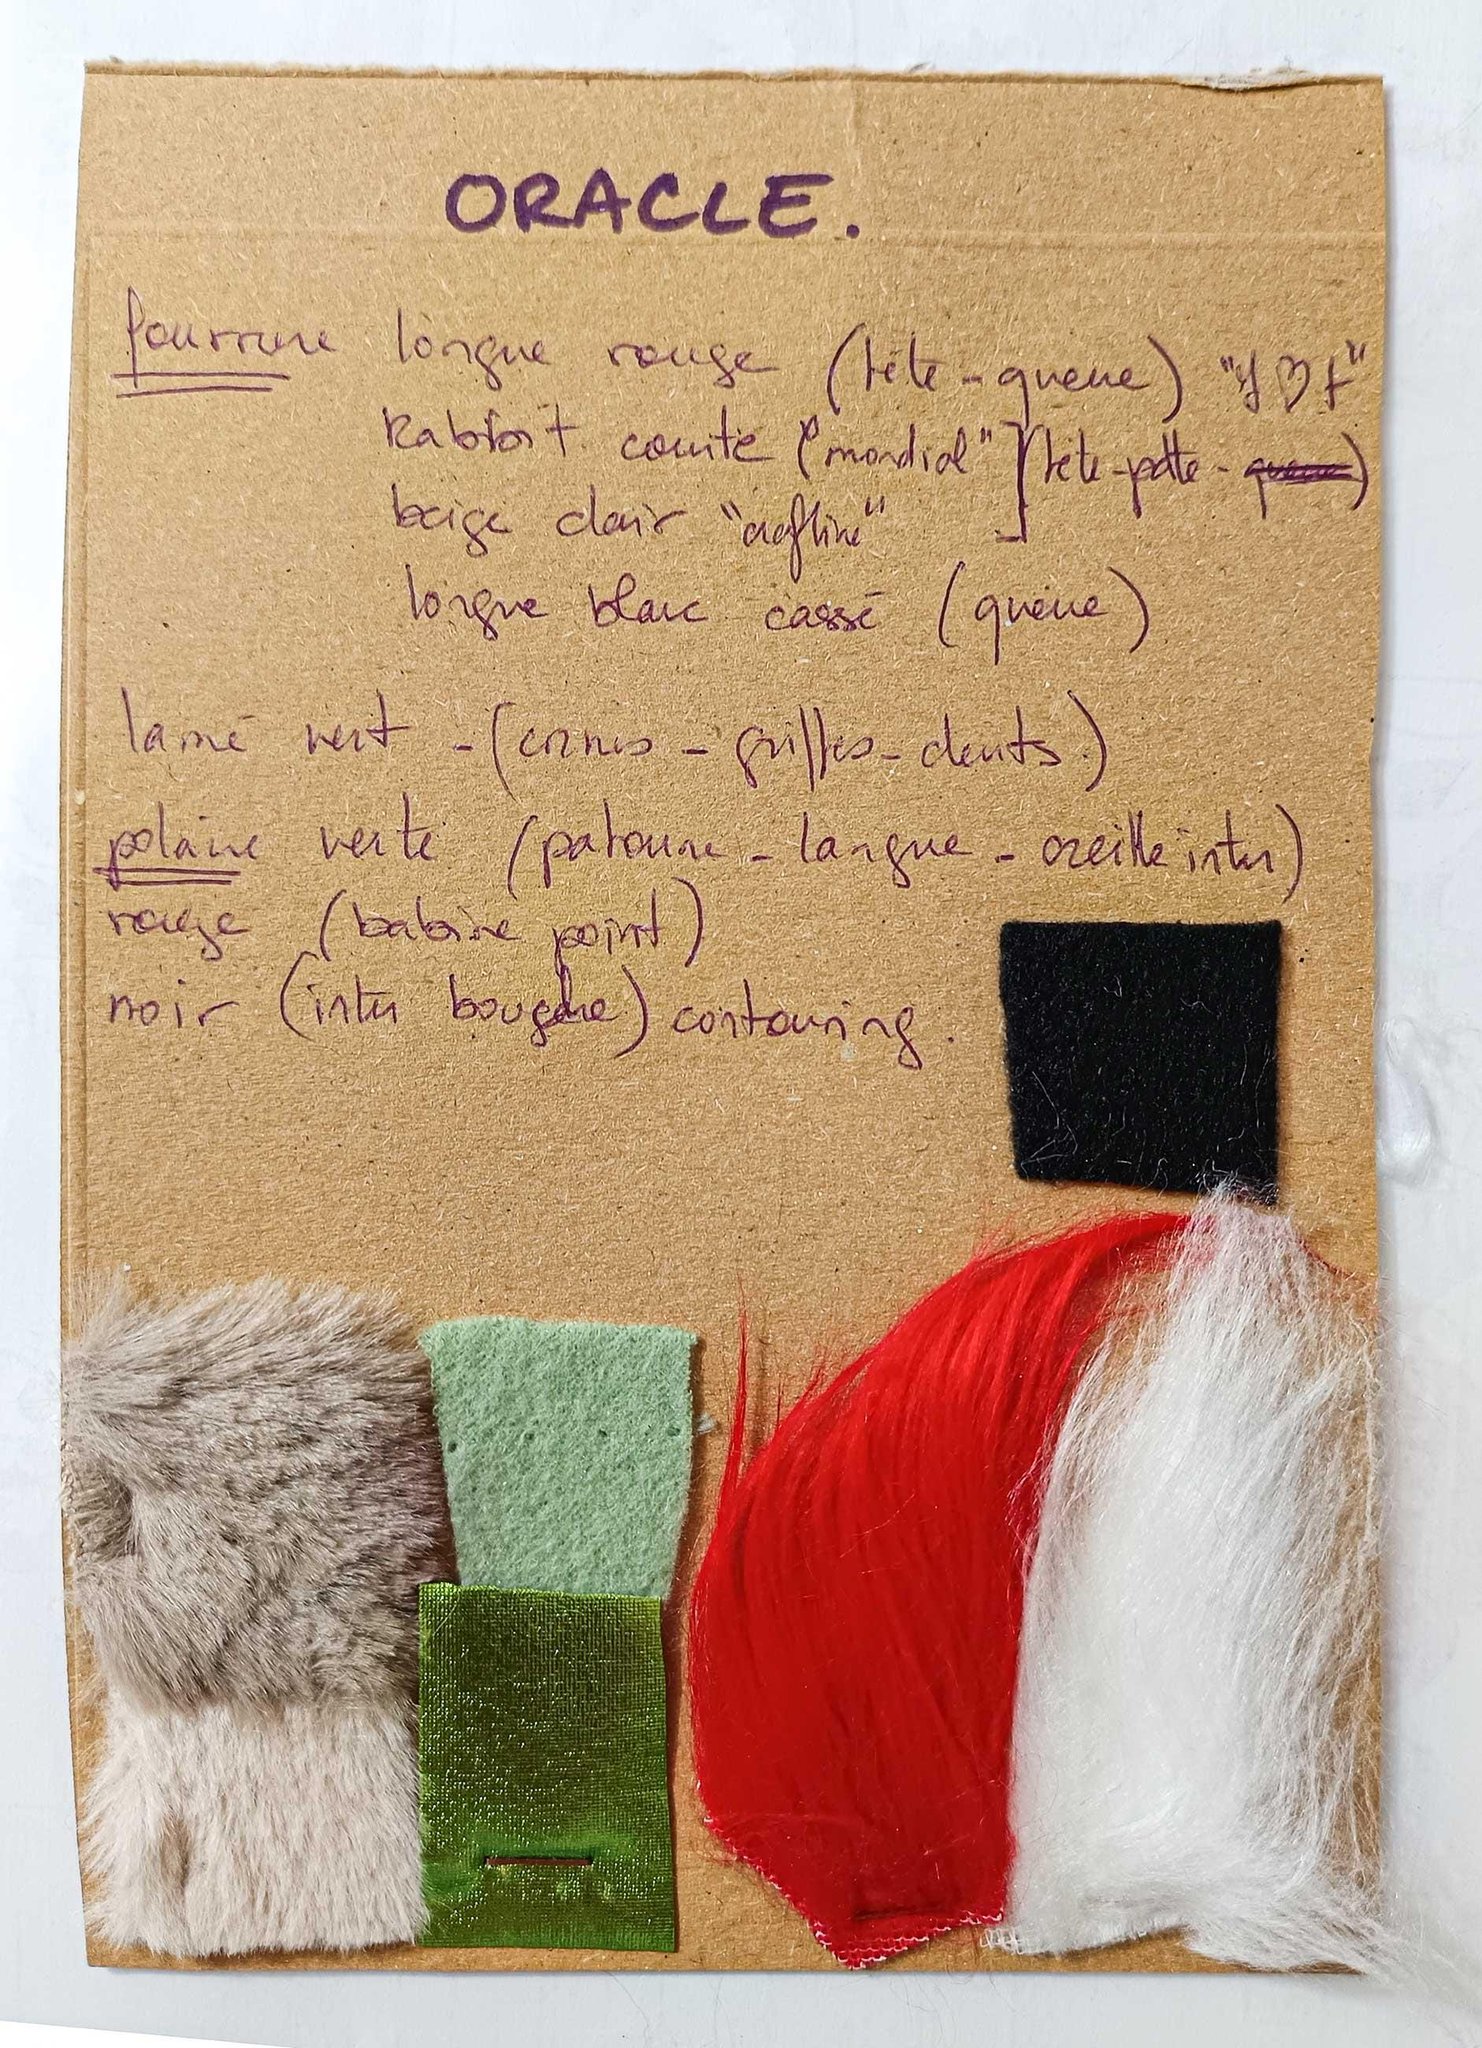 ORACLE.
fourrure longue rouge (tête - queue) "I ♡ f"
Rabbit courte ("mondial"] (tête - patte - queue)
beige clair
longue blanc cassé (queue)
lamé vert - (cornes - griffes - dents)
polaire verte (patoune - langue - oreille inter)
rouge (babine point)
noir (inter bouche) contouring.